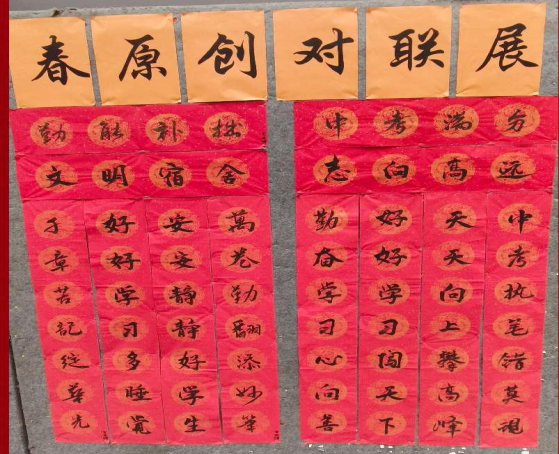 春原创对联展
勤能补拙
文明宿舍
萬卷勤翻添妙筆
安安静静好学生
好好学习多睡觉
千章苦記綻華光
中考满分
志向高远
中考执笔错莫
天天向上攀高峰
好好学习闯天下
勤奋学习心向善